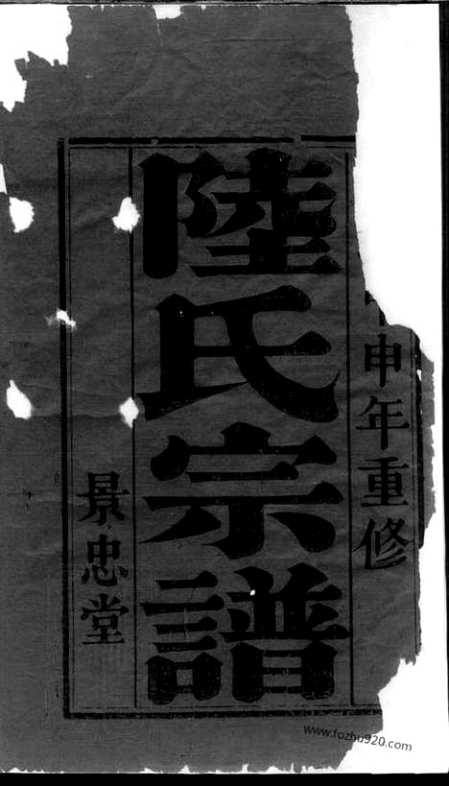 申年重修
陸氏宗譜
景忠堂
www.fozhu920.com